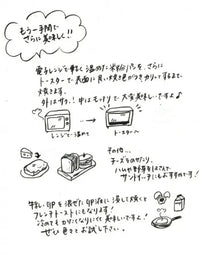 もう一手間で
さらに美味しく!!
電子レンジで軽く温めた米粉パンを、さらに
トースターで表面に良い焼き色がつきカリッとするまで
焼きます。
外はサクッ、中はもっちりで大変美味しいですよ♪
レンジで温めて
トースターへ
その他…
チーズをのせたり、
ハムや野菜をはさんで
サンドイッチにもおすすめです!
牛乳・卵を混ぜた卵液に浸して焼くと
フレンチトーストにもなります!
冷めてもかたくなりにくくて美味しいですよ!
ぜひ色々お試し下さい。